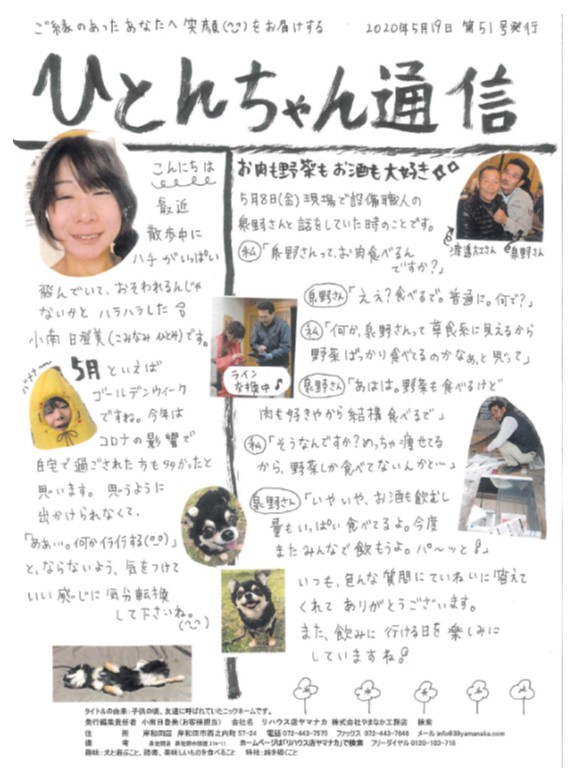 ご縁のあったあなたへ 笑顔(^^)をお届けする
2020年5月19日 第51号発行
ひとんちゃん通信
こんにちは
最近
散歩中に
ハチがいっぱい
飛んでいて、おそわれるんじゃ
ないかと ハラハラした
小南 日登美(こみなみ ひとみ)です。
バナナ
5月 といえば
ゴールデンウィーク
ですね。今年は
コロナの影響で
自宅で過ごされた方も多かったと
思います。思うように
出かけられなくて、
「あぁ…。何かイライラする(^^)」
と、ならないよう、気をつけて
いい感じに気分転換
して下さいね。
(^^)
お肉も野菜もお酒も大好き
5月8日(金)現場で設備職人の
泉野さんと話をしていた時のことです。
私「泉野さんって、お肉食べるん
ですか?」
泉野さん
泉野さん「ええ?食べるで。普通に。何で?」
私「何か、泉野さんって草食系に見えるから
野菜ばっかり食べてるのかなぁ、と思って」
ライン
交換中♪
泉野さん「あはは。野菜も食べるけど
肉も好きやから結構食べるで」
私「そうなんですか?めっちゃ痩せてる
から、野菜しか食べてないんかと…」
泉野さん「いやいや、お酒も飲むし
量もいっぱい食べてるよ。今度
またみんなで飲もうよ。パ〜ッと♪」
いつも、色んな質問にていねいに答えて
くれて ありがとうございます。
また、飲みに行ける日を楽しみに
していますね♪
タイトルの由来:子供の頃、友達に呼ばれていたニックネームです。
発行編集責任者 小南日登美(お客様担当) 会社名 リハウス店ヤマナカ 株式会社やまなか工務店 検索
住 所 岸和田店 岸和田市西之内町57-24 電話072-443-7575 ファックス 072-443-7646 メール info@39yamanaka.com
備 考 ホームページは「リハウス店ヤマナカ」で検索 フリーダイヤル0120-103-716
趣味:犬と遊ぶこと、読書、美味しいものを食べること